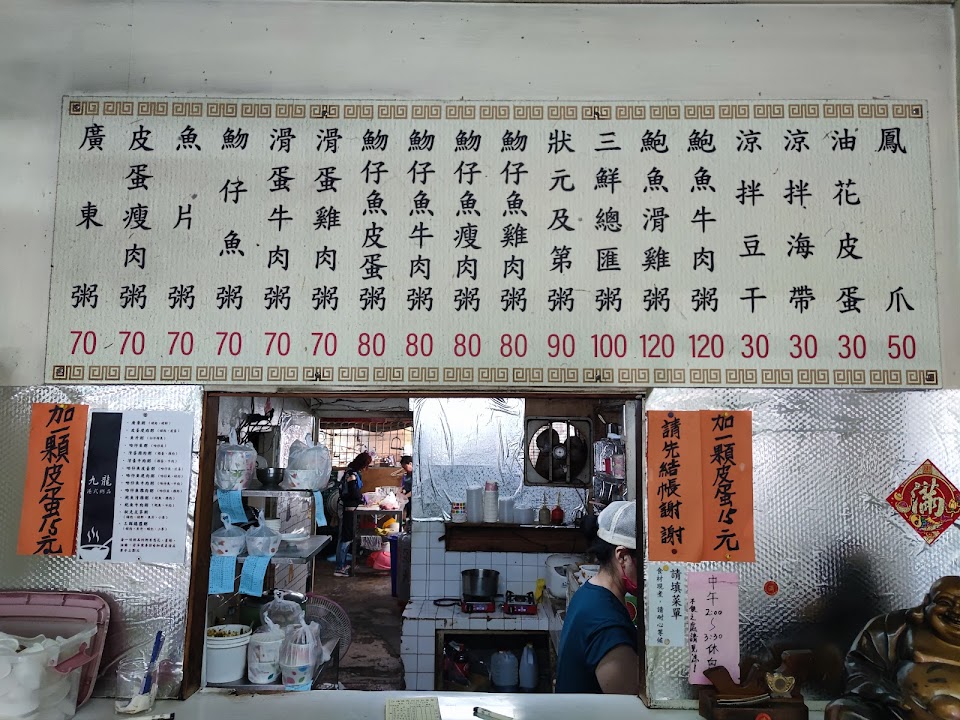 廣東粥 70
皮蛋瘦肉粥 70
魚片粥 70
魩仔魚粥 70
滑蛋牛肉粥 70
滑蛋雞肉粥 70
魩仔魚皮蛋粥 80
魩仔魚牛肉粥 80
魩仔魚瘦肉粥 80
魩仔魚雞肉粥 80
狀元及第粥 90
三鮮總匯粥 100
鮑魚滑雞粥 120
鮑魚牛肉粥 120
涼拌豆干 30
涼拌海帶 30
油花皮蛋 30
鳳爪 50
加一顆皮蛋15元
九龍
港式粥品
加一顆皮蛋15元
請先結帳謝謝
請填菜單
食材現煮，請耐心等候
中午
2:00
～
3:30
休息
滿